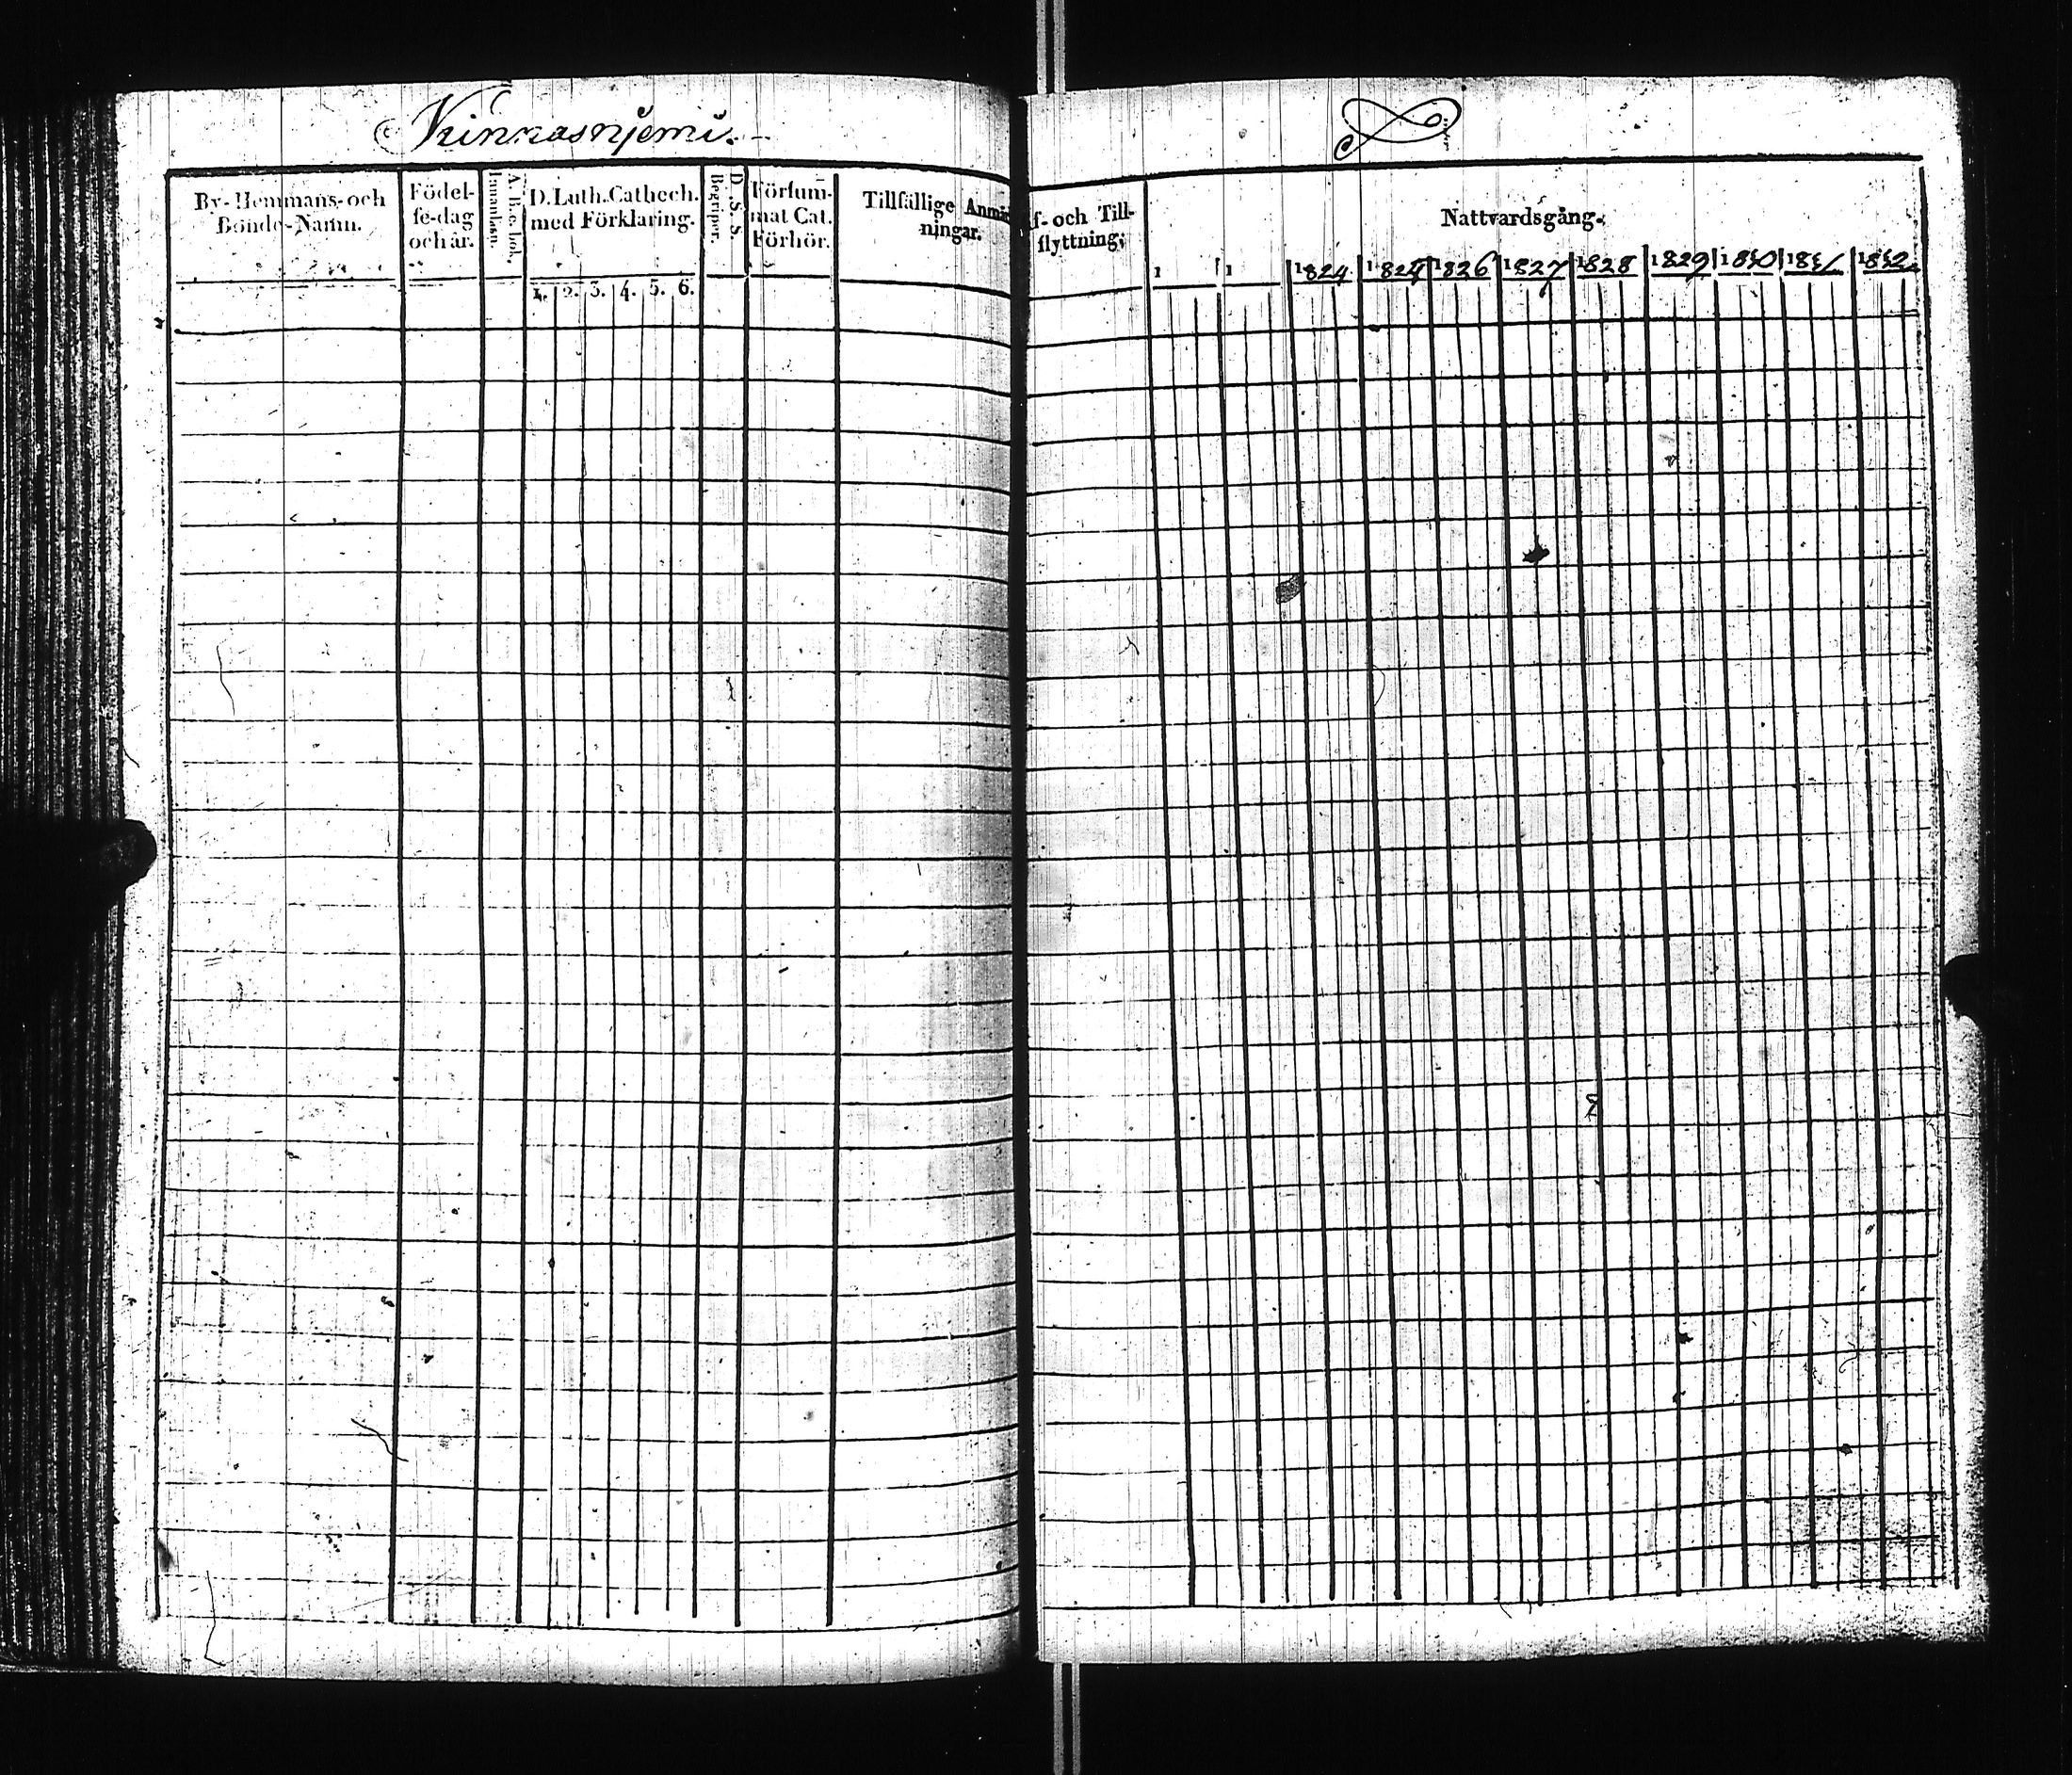 Kinnasnjemi.
By- Hemmans- och
Bonde-Namn.
Födel-
se-dag
och år.
A. B. c. bok.
Innanläsn.
D. Luth. Cathech.
med Förklaring.
1. 2. 3. 4. 5. 6.
D. S. S.
Begriper.
Försum-
mat Cat.
Förhör.
Tillfällige Anmä
ningar.
f- och Till-
flyttning;
Nattvardsgång.
1 1 1824 1824 1826 1827 1828 1829 1830 1831 1832